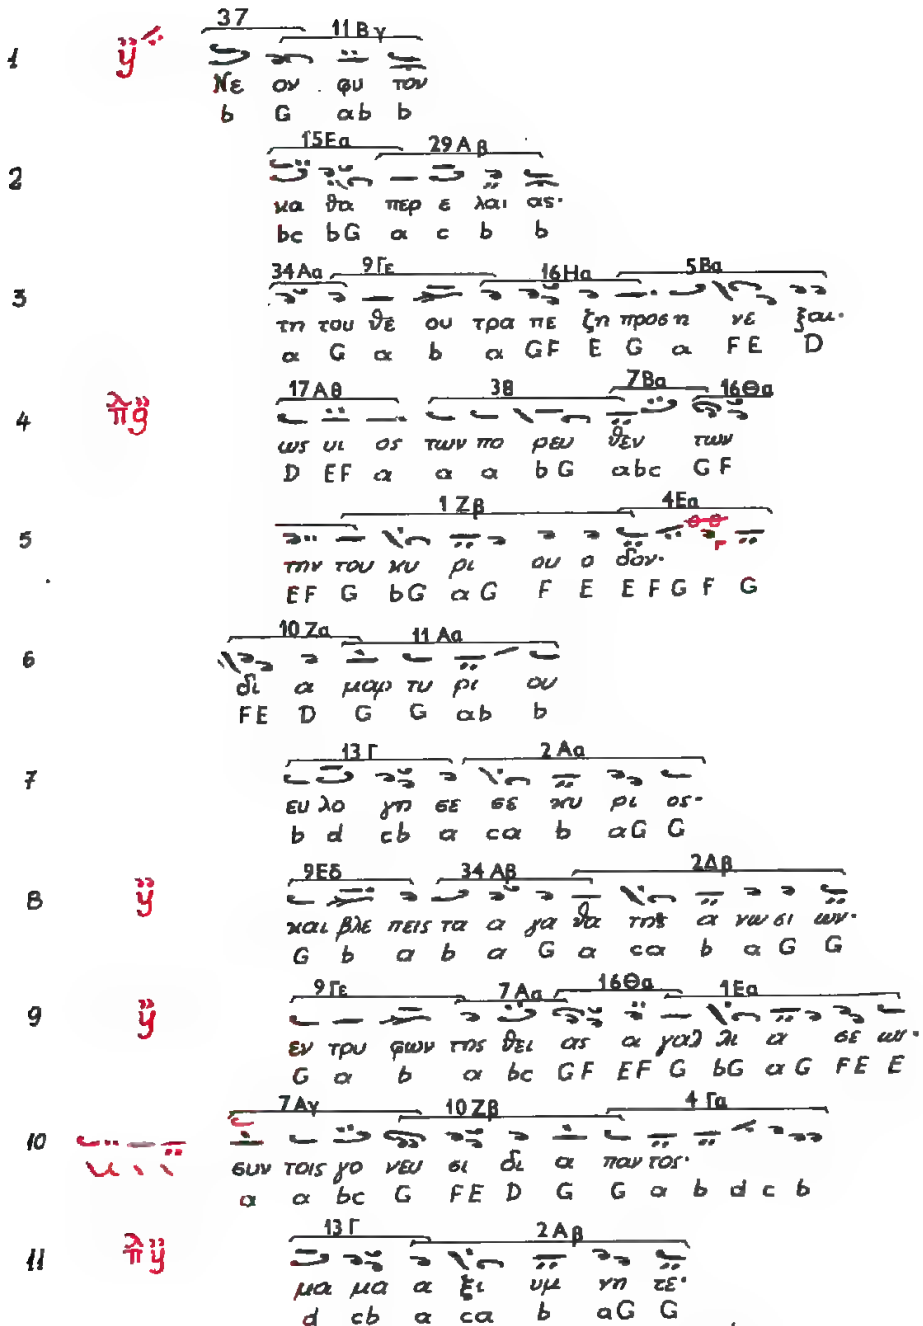 37 11Βγ
1 ÿ
Νε ον φυ τον
b G ab b
15Εα 29Αβ
2
κα θα περ ε λαι ας·
bc bG a c b b
34Αα 9Γε 16Ηα 5Βα
3
τη του θε ου τρα πε ζη προσ η νε ξαι·
a G a b a GF E G a FE D
17Αθ 3θ 7Βα 16Θα
4
ως υι ος των πο ρευ θεν των
D EF a a a bG abc GF
1Ζβ 4Εα
5
την του κυ ρι ου ο δον·
EF G bG aG F E EFG F G
10Ζα 11Αα
6
δι α μαρ τυ ρι ου
FE D G G ab b
13Γ 2Αα
7
ευ λο γη σε σε κυ ρι ος·
b d cb a ca b aG G
9Εδ 34Αβ 2Δβ
8 ÿ
και βλε πεις τα α γα θα της α νω σι ων·
G b a b a G a ca b a G G
9Γε 7Αα 16Θα 1Εα
9 ÿ
εν τρυ φων της θει ας α γαλ λι α σε ως·
G a b a bc GF EF G bG aG FE E
7Αγ 10Ζβ 4Γα
10
συν τοις γο νευ σι δι α παν τος·
a a bc G FE D G G a b d c b
13Γ 2Αβ
11 π ÿ
μα μα α ξι υμ νη τε·
d cb a ca b aG G